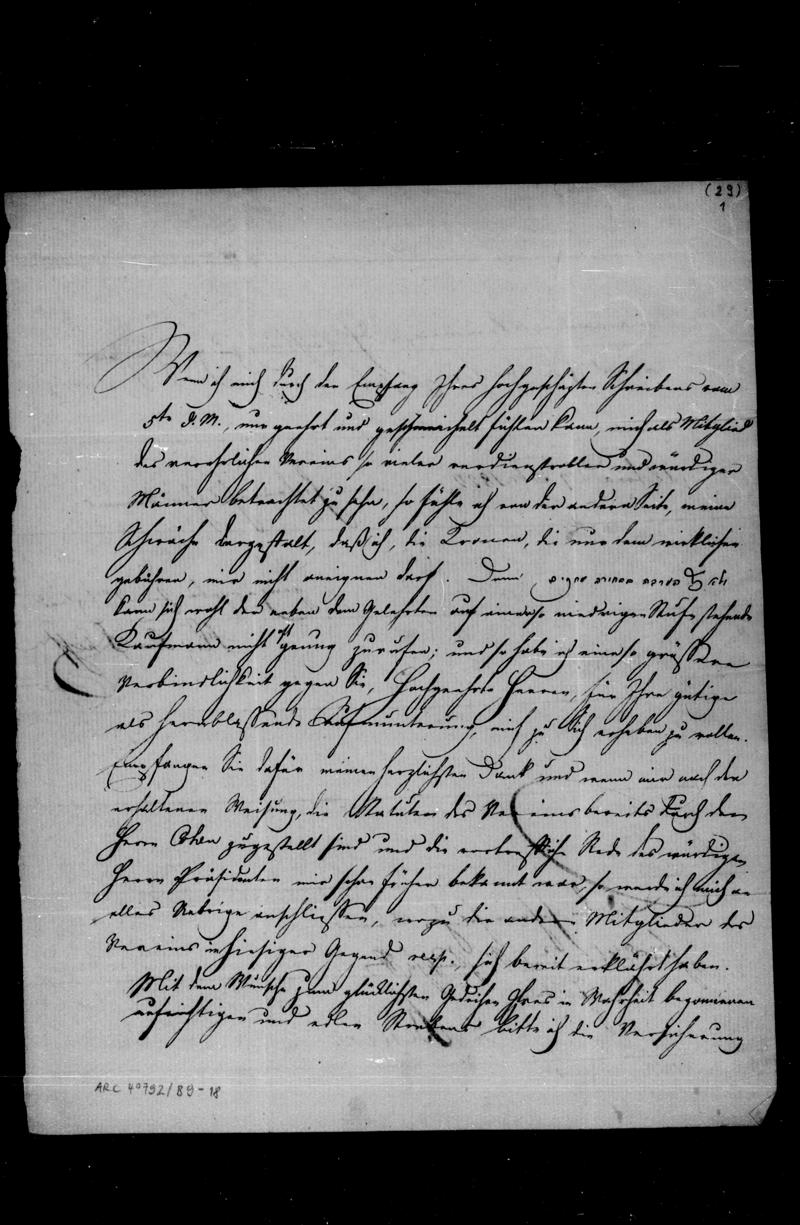 (29)
1
Wenn ich mich durch den Empfang Ihres hochgeschäzten Schreibens vom
5ten d. M., nur geehrt und geschmeichelt fühlen kann, mich als Mitglied
des verehrlichen Vereins so vieler verdienstvollen und würdiger
Männer betrachtet zu sehn, so fühle ich von der andern Seite, meine
Schwäche dergestalt, daß ich, die Kronen, die nur dem wirklichen
gebühren, mir nicht aneignen darf. Denn
kann sich wohl der neben dem Gelehrten auf einer so niedrigen Stufe stehende
Kaufmann nicht oft genug zurufen; und so habe ich eine so grössere
Verbindlichkeit gegen Sie, Hochgeehrte Herren, für Ihre gütige
als herablassende Aufmunterung, mich zu Sich erheben zu wollen.
Empfangen Sie dafür meinen herzlichsten Dank und wenn mir nach der
erhaltenen Weisung, die Statuten des Vereins bereits durch den
Herrn Cohen zugestellt sind und die vortreffliche Rede des würdigen
Herrn Präsidenten mir schon früher bekannt war, so werde ich mich an
alles Uebrige anschliessen, wozu die andern Mitglieder des
Vereins in hiesiger Gegend resp. sich bereit erklährt haben.
Mit dem Wunsche zum glücklichsten Gedeihen Ihres in Wahrheit begonnenen
aufrichtigen und edlen Strebens bitte ich die Versicherung
ARC 4°792/B9-18